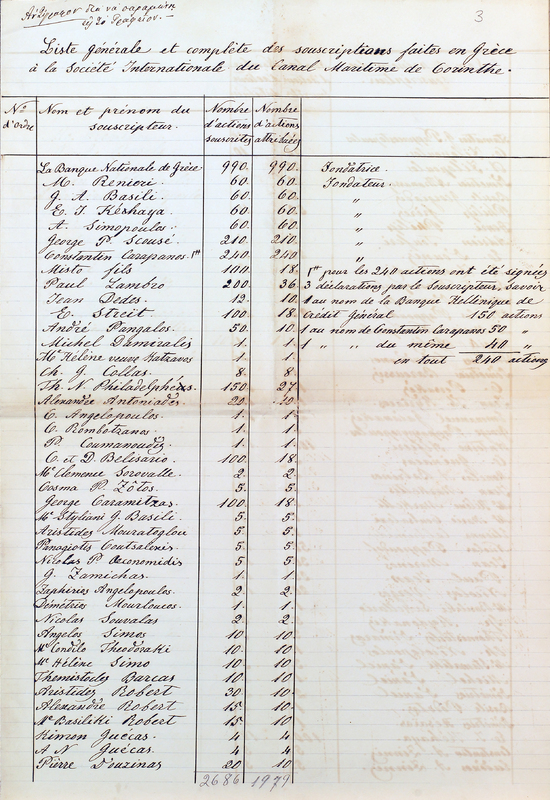 Ἀντίγραφον διὰ νὰ παραμείνῃ
εἰς τὸ Γραφεῖον.
3
Liste générale et complète des souscriptions faites en Grèce
à la Société Internationale du Canal Maritime de Corinthe.
No d'ordre Nom et prénom du souscripteur. Nombre d'actions souscrites Nombre d'actions attribuées
La Banque Nationale de Grèce 990. 990. Fondatrice.
M. Renieri. 60. 60. Fondateur.
G. A. Basili. 60. 60. "
E. J. Késhaya. 60. 60. "
A. Simopoulos. 60. 60. "
George P. Scousé. 210. 210. "
Constantin Carapanos. 1) 240. 240. "
Misto fils 100. 18. 1) pour les 240 actions ont été signées
Paul Lambro 200. 36. 3 déclarations par le Souscripteur, savoir
Jean Dedes. 12. 10 1 au nom de la Banque Hellénique de
E. Streit 100. 18 Crédit Général 150 actions
André Pangalos. 50. 10 1 au nom de Constantin Carapanos 50 "
Michel Damiralès 1. 1. 1 " " du même 40 "
Me Hélène veuve Hatzavos 1. 1. en tout 240 actions
Ch. G. Collas. 8. 8.
Th. N. Philadelphéus. 150. 27
Alexandre Antoniadès. 20. 10.
C. Angelopoulos. 1. 1.
C. Rombotzanos. 1. 1.
P. Coumanoudis. 1. 1.
C. et D. Bélisario. 100. 18
Me Clémence Serovalle. 2. 2.
Cosma P. Zôtos. 5. 5.
George Caramitzas. 100. 18.
Me Styliani G. Basili. 5. 5.
Aristides Mouratoglou 5. 5.
Panagiotis Coutsalexis. 5. 5.
Nicolas P. Œconomidis 5 5
G. Zamichas. 1. 1.
Zaphirios Angelopoulos. 2 2.
Démétrios Mourloucos. 1. 1.
Nicolas Souvalas 2. 2.
Angelos Simos 10 10.
Me Condilo Théodoraki 10 10.
Me Hélène Simo 10 10.
Themistocles Barcas 10 10.
Aristides Robert 30 10.
Alexandre Robert 15 10.
Me Basiliki Robert 15 10.
Kimon Guécas. 4 4
A N Guécas. 4 4
Pierre D'ouzinas 20 10
2686 1979